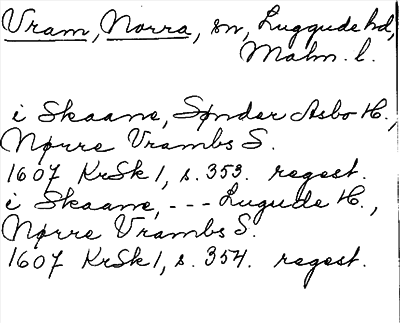 Vram, Norra, sn, Luggude hd,
Malm. l.
i Skaane, Sønder Asbo H.,
Nørre Vrambs S.
1607 KrSk 1, s. 353. regest.
i Skaane, --- Lugude H.,
Nørre Vrambs S.
1607 KrSk 1, s. 354. regest.